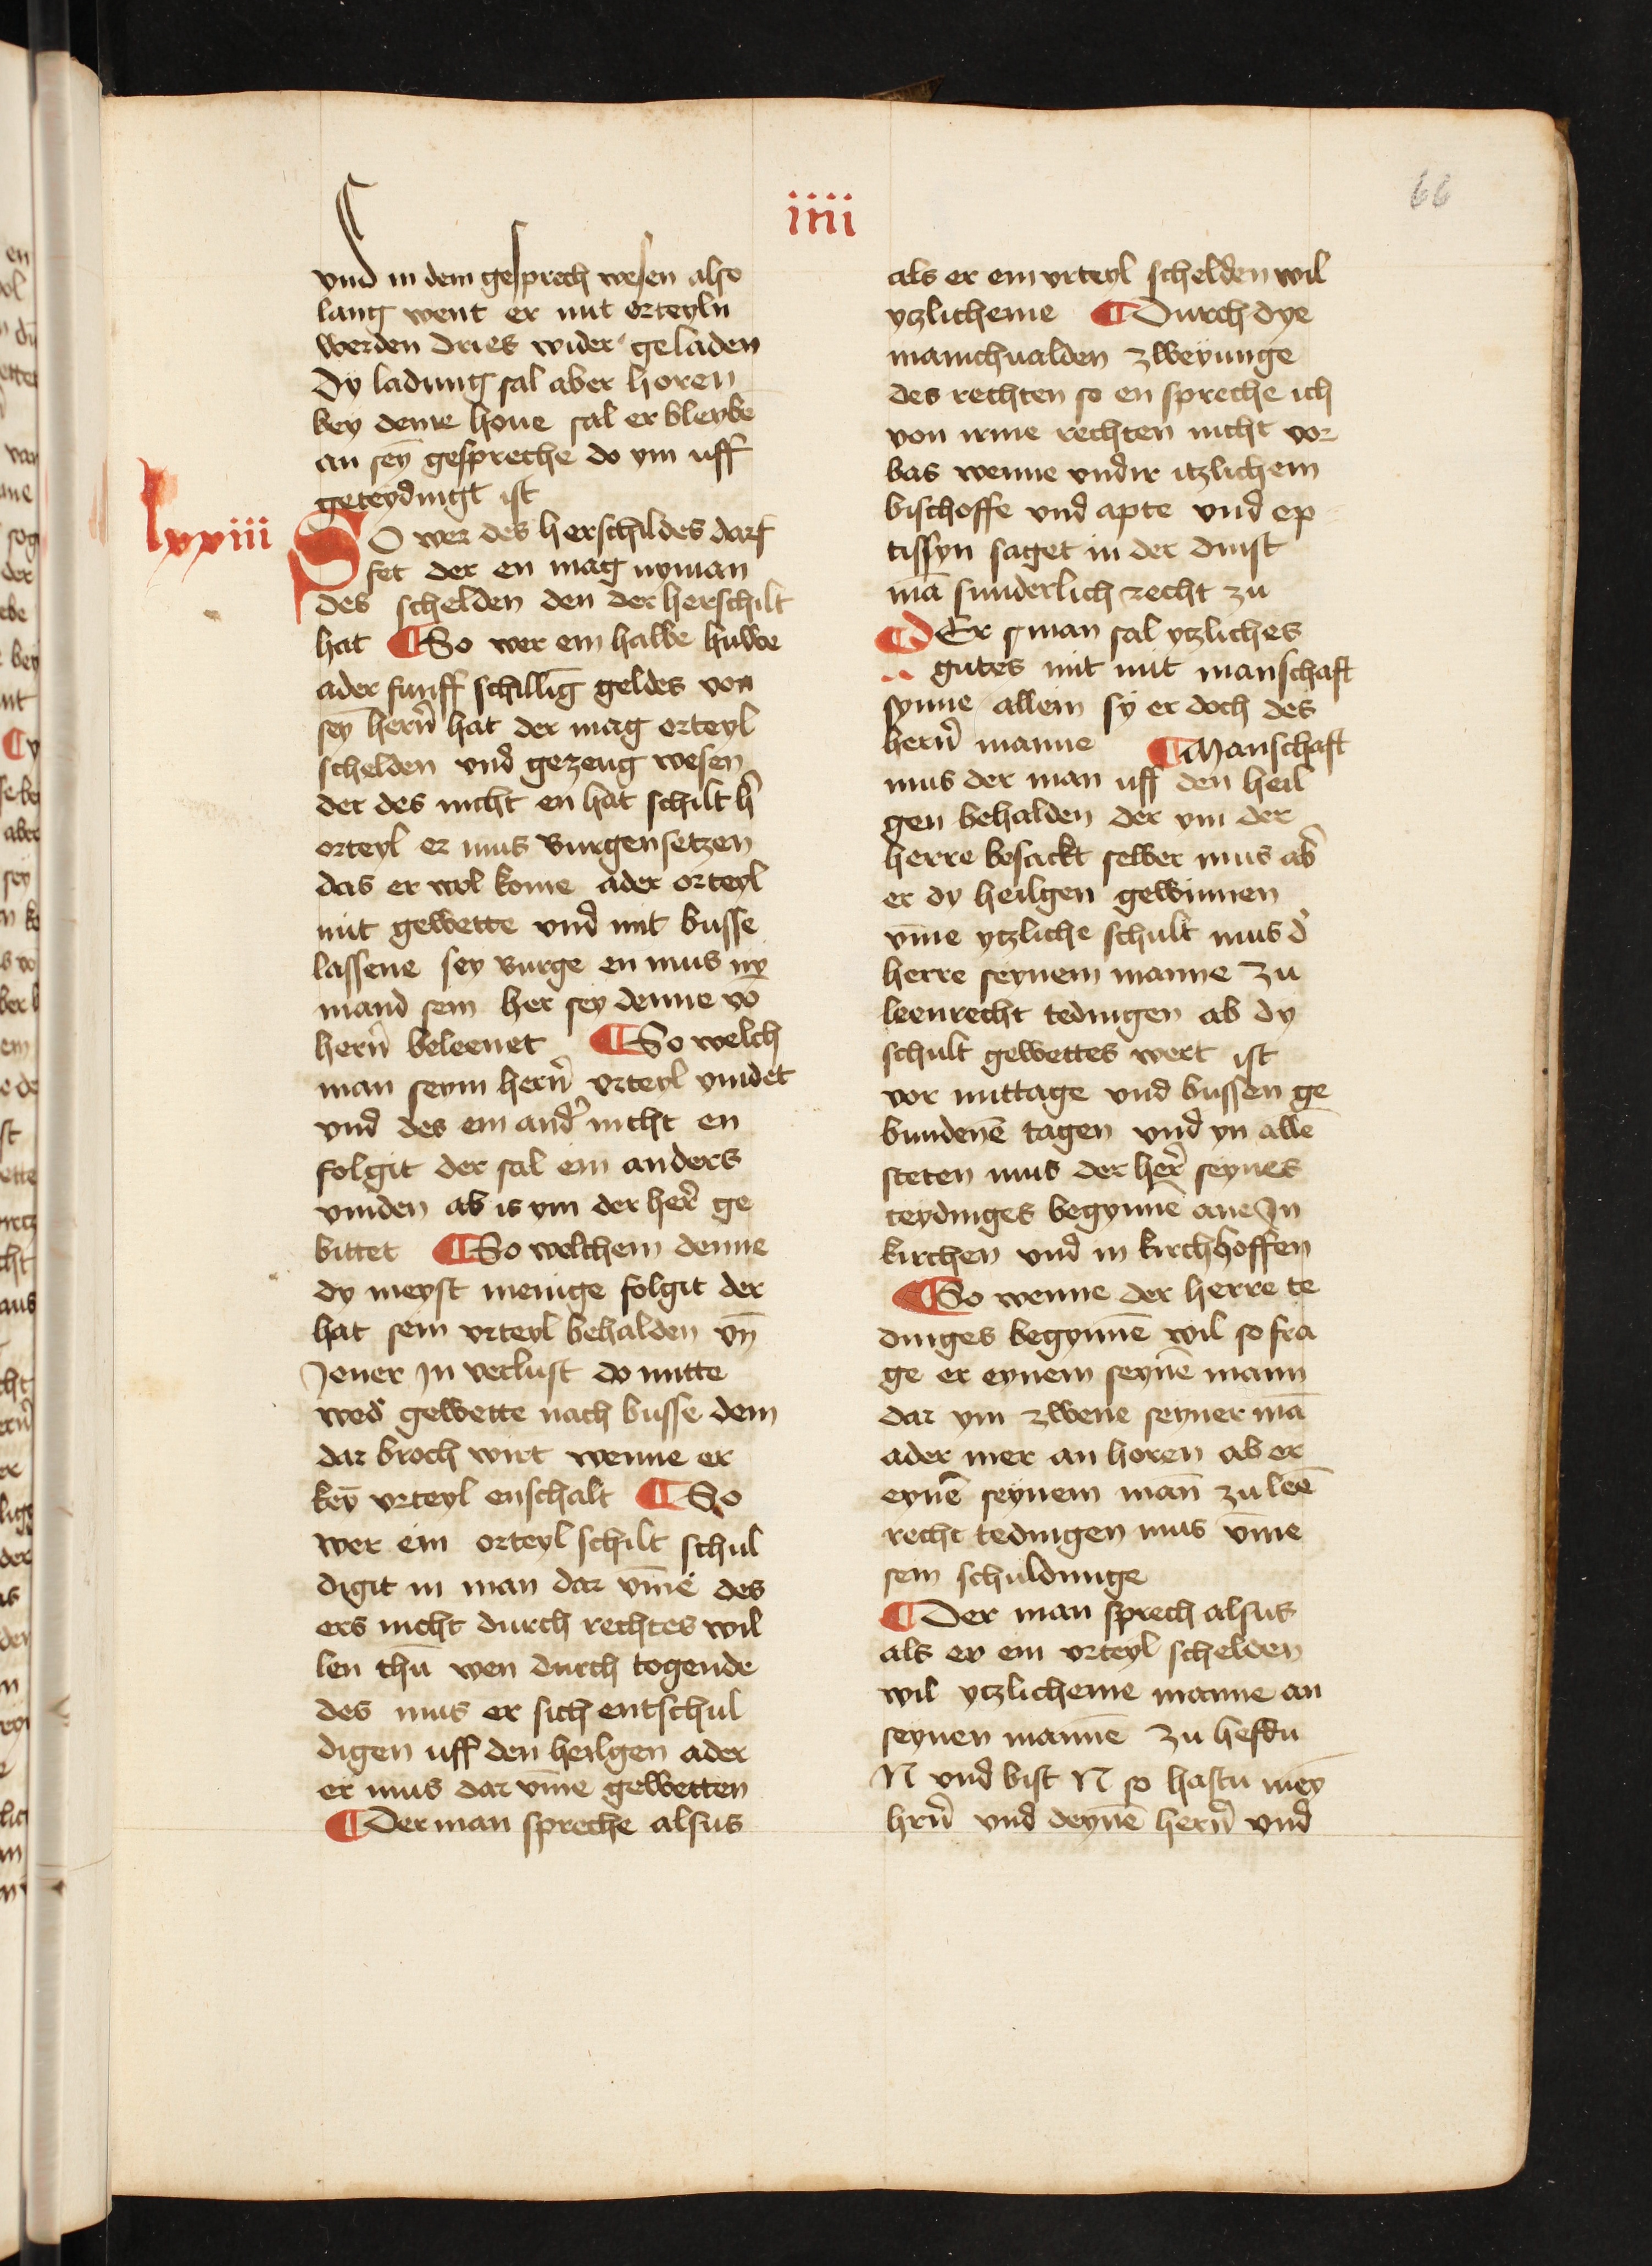 iiii
66
vnd in dem gesprech wesen also
lang went er mit orteyln
werden dries wider geladen
Dy ladung sal aber horen
bey deme houe sal er bleybē
an seȳ gespreche do ym uff
geteydingt ist
lxxiii
SO wer des herschildes darf
fet der en mag nyman
des schelden den der herschilt
hat ¶ So wer ein halbe hubbe
ader funff schillīg geldes von
seȳ herñ hat der mag orteyl
schelden vnd gezeug wesen
der des nicht en hat schilt h̄
orteyl er mus burgen setzen
das er wol kome ader orteyl
mit gewette vnd mit busse
lassene sey burge en mus ny
mand sein her sey denne vō
herñ beleenet ¶ So welch
man seym herñ vrteyl vindet
vnd des ein and̕ nicht en
folgit der sal ein anders
vinden ab is ym der her̕ ge
bittet ¶ So welchem denne
dy meyst menige folgit der
hat sein vrteyl behalden vn̄
Jener In verlust do mitte
wed̕ gewette nach busse dem
dar broch wirt wenne er
keȳ vrteyl enschalt ¶ So
wer ein orteyl schilt schul
digit in man dar vm̄e des
ers nicht durch rechtes wil
len thū wen durch togende
des mus er sich entschul
digen uff den heilgen ader
er mus dar vm̄e gewetten
¶ Der man spreche alsus
als er ein vrteyl schelden wil
yzlicheme ¶ Durch dye
manichualden zweyunge
des rechten so en spreche ich
von irme rechten nicht vor
bas wenne vndir itzlichem
bischoffe vnd apte vnd ep
tissyn saget in der dinst
mā sunderlich recht zu
¶ dEr man sal ytzliches
gutes mit mit manschaft
synne allein sy er doch des
herñ manne ¶ Manschaft
mus der man uff den heil
gen behalden der ym der
herre besackt selber mus ab̕
er dy heilgen gewinnen
vm̄e ytzliche schult mus d̕
herre seynem manne zu
leenrecht tedingen ab dy
schult gewettes wert ist
vor mittage vnd bussen ge
bundenē tagen vnd yn allē
steten mus der her̕ seynes
teydinges begynnē ane In
kirchen vnd in kirchhoffen
¶ So wenne der herre te
dinges begynnē wil so fra
ge er eynem seynē mann
dar ym zwene seyner mā
ader mer an horen ab er
eynē seynem man̄ zu leē
recht tedingen mus vm̄e
sein schuldunge
¶ Der man sprech alsus
als er ein vrteyl schelden
wil ytzlicheme manne an
seynen mannē zu hefdu
N vnd bist N so hastu mey
hrñ vnd deynē herñ vnd